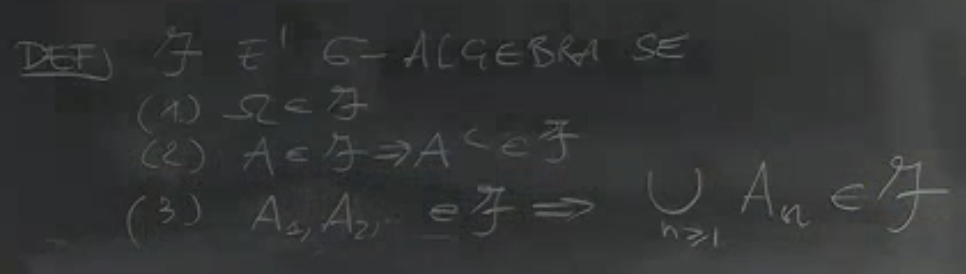 DEF) ℱ E' σ-ALGEBRA SE
(1) Ω ∈ ℱ
(2) A ∈ ℱ ⇒ A^c ∈ ℱ
(3) A₁, A₂, .. ∈ ℱ ⇒ ⋃_{n≥1} Aₙ ∈ ℱ